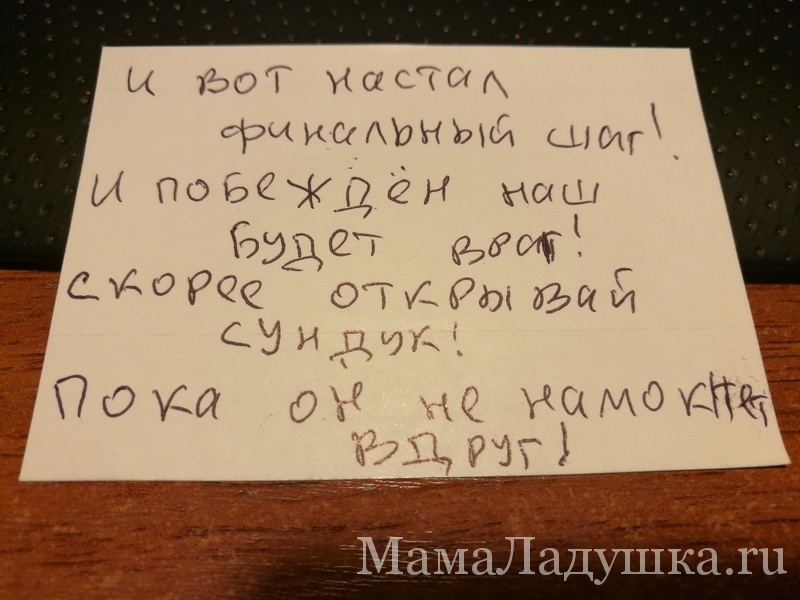 и вот настал
финальный шаг!
И побеждён наш
будет враг!
скорее открывай
сундук!
Пока он не намокнет
вдруг!
МамаЛадушка.ru